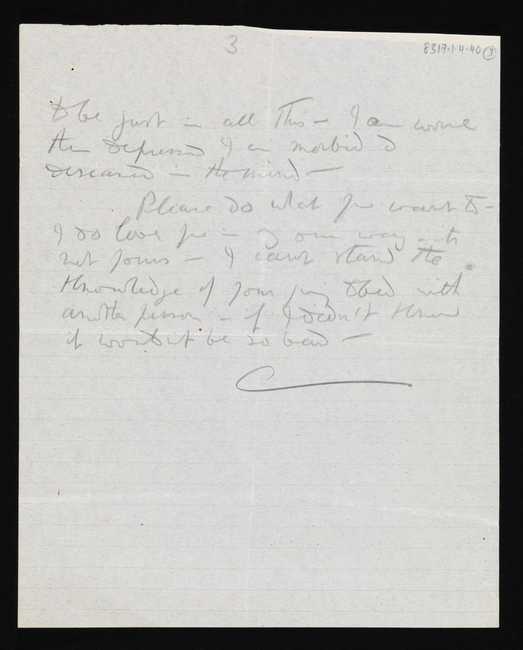 3
8317.1.4.40
to be just in all this – I am worse
than depressed I am morbid &
diseased in the mind –
Please do what you want to –
I do love you in my own way – its
not yours – I cant stand the
knowledge of your going to bed with
another person – if I didn't know
it wouldn't be so bad –
C